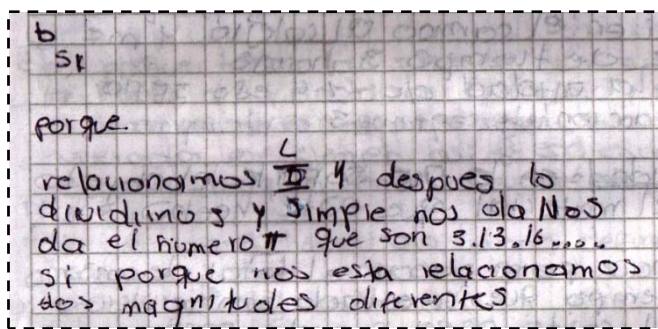 b
SI
porque.
relacionamos L/D y despues lo
dividimos y simple nos da Nos
da el numero π que son 3.13.16.....
si porque nos esta relacionamos
dos magnitudes diferentes